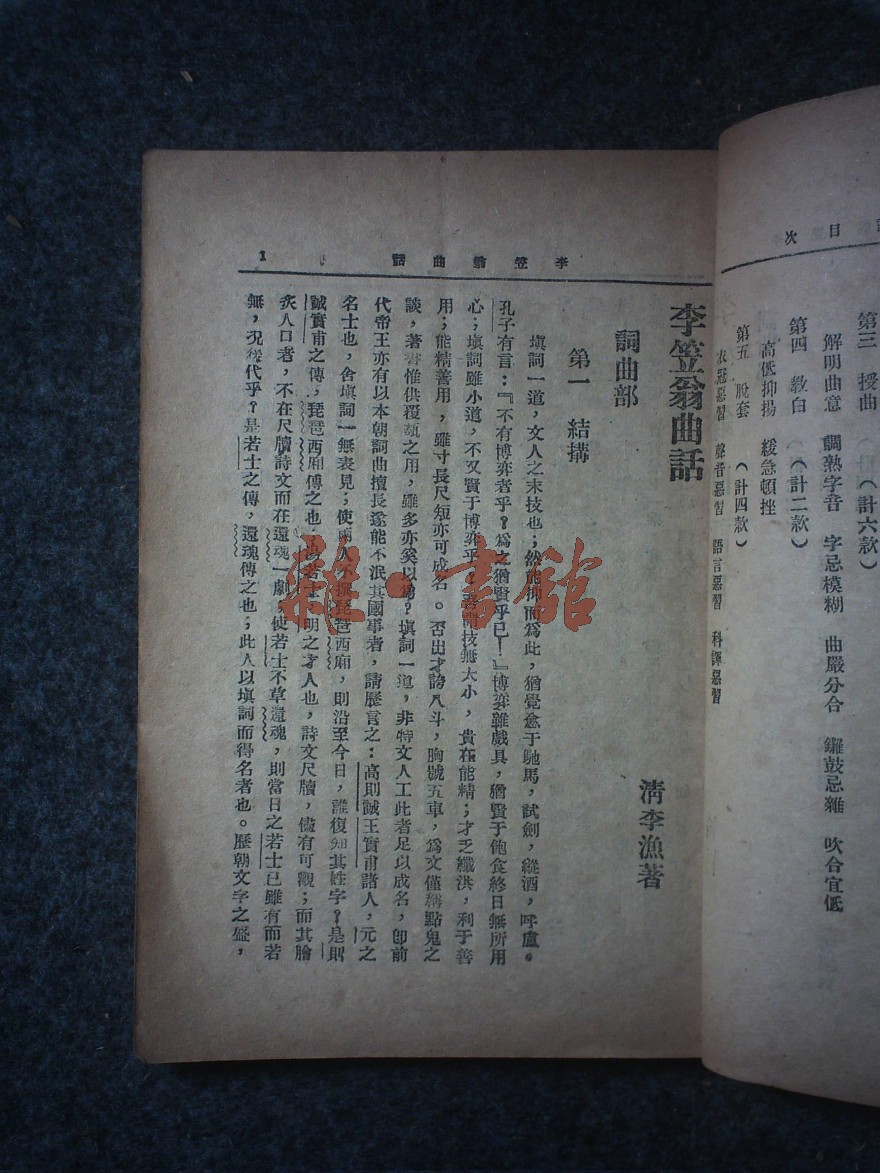 目次
第三　授曲　（計六款）
解明曲意　調熟字音　字忌模糊　曲嚴分合　鑼鼓忌雜　吹合宜低
第四　教白　（計二款）
高低抑揚　緩急頓挫
第五　脫套　（計四款）
衣冠惡習　聲音惡習　語言惡習　科諢惡習
李笠翁曲話　1
李笠翁曲話
清李漁著
詞曲部
第一　結搆
填詞一道，文人之末技也；然能抑而爲此，猶覺愈于馳馬，試劍，縱酒，呼盧。
孔子有言：『不有博弈者乎？爲之猶賢乎已！』博弈雖戲具，猶賢于飽食終日無所用
心；填詞雖小道，不又賢于博弈乎？吾謂技無大小，貴在能精；才乏纖洪，利于善
用；能精善用，雖寸長尺短亦可成名。否出才誇八斗，胸號五車，爲文僅稱點鬼之
談，著書惟供覆瓿之用，雖多亦奚以爲？填詞一道，非特文人工此者足以成名，卽前
代帝王亦有以本朝詞曲擅長遂能不泯其國事者，請歷言之：高則誠王實甫諸人，元之
名士也，舍填詞一無表見；使兩人不撰琵琶西廂，則沿至今日，誰復知其姓字？是則
誠實甫之傳，琵琶西廂傳之也；湯若士，明之才人也，詩文尺牘，儘有可觀；而其膾
炙人口者，不在尺牘詩文而在還魂一劇，使若士不草還魂，則當日之若士已雖有而若
無，況後代乎？是若士之傳，還魂傳之也；此人以填詞而得名者也。歷朝文字之盛，
雜·書館